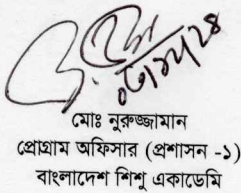 মোঃ নুরুজ্জামান
প্রোগ্রাম অফিসার (প্রশাসন -১)
বাংলাদেশ শিশু একাডেমি